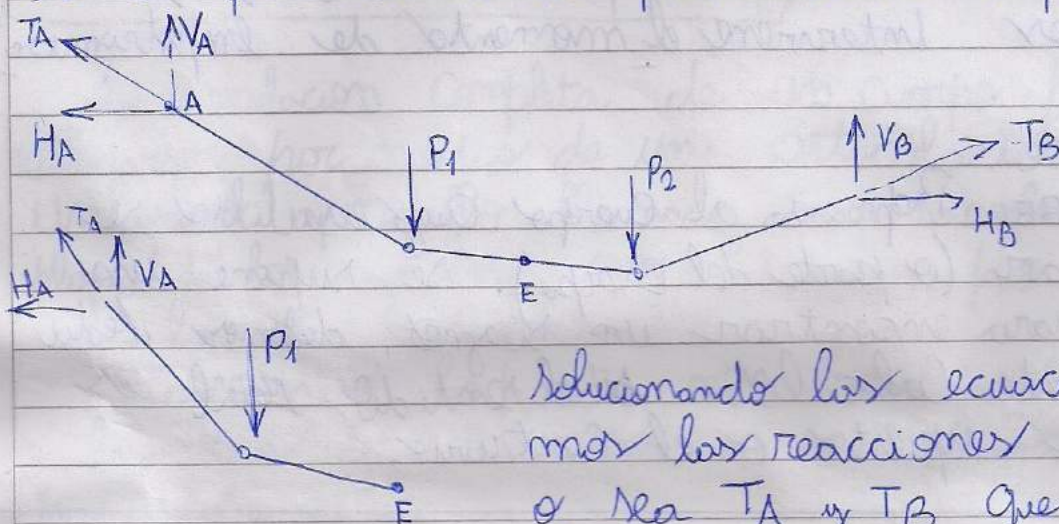 TA VA
A
HA
P1
P2
VB
TB
HB
E
TA
VA
HA
P1
E
solucionando las ecuac
mos las reacciones
o sea TA y TB Que